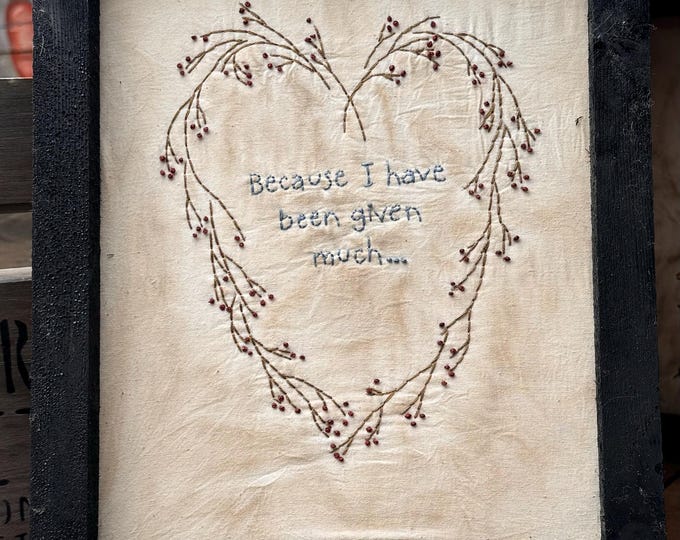 Because I have
been given
much...